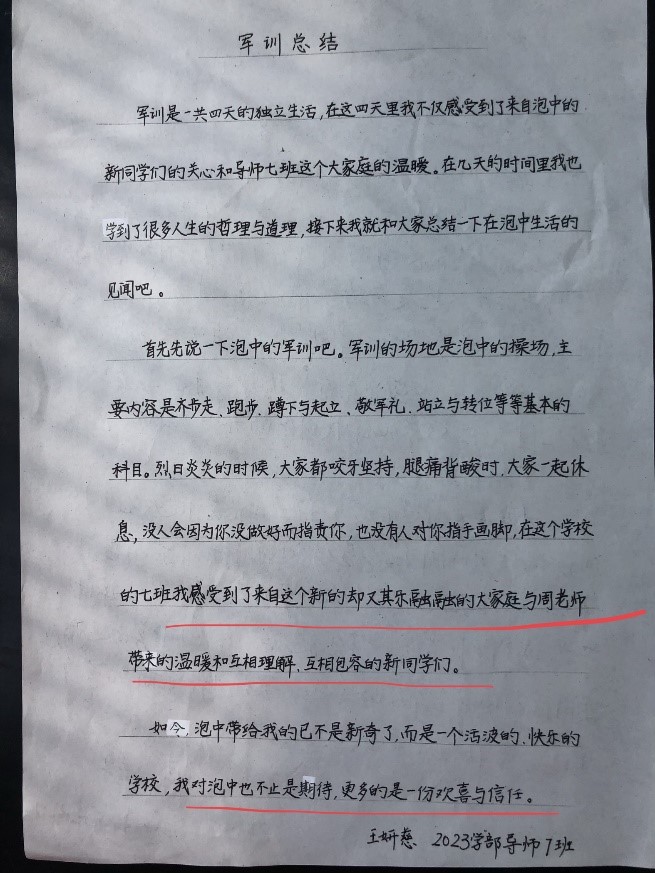 军训总结
军训是一共四天的独立生活,在这四天里我不仅感受到了来自泡中的
新同学们的关心和导师七班这个大家庭的温暖。在几天的时间里我也
学到了很多人生的哲理与道理,接下来我就和大家总结一下在泡中生活的
见闻吧。
首先先说一下泡中的军训吧。军训的场地是泡中的操场,主
要内容是齐步走、跑步、蹲下与起立、敬军礼、站立与转位等等基本的
科目。烈日炎炎的时候,大家都咬牙坚持,腿痛背酸时,大家一起休
息,没人会因为你没做好而指责你,也没有人对你指手画脚,在这个学校
的七班我感受到了来自这个新的却又其乐融融的大家庭与周老师
带来的温暖和互相理解、互相包容的新同学们。
如今,泡中带给我的已不是新奇了,而是一个活波的、快乐的
学校,我对泡中也不止是期待,更多的是一份欢喜与信任。
王妍慈 2023学部导师7班